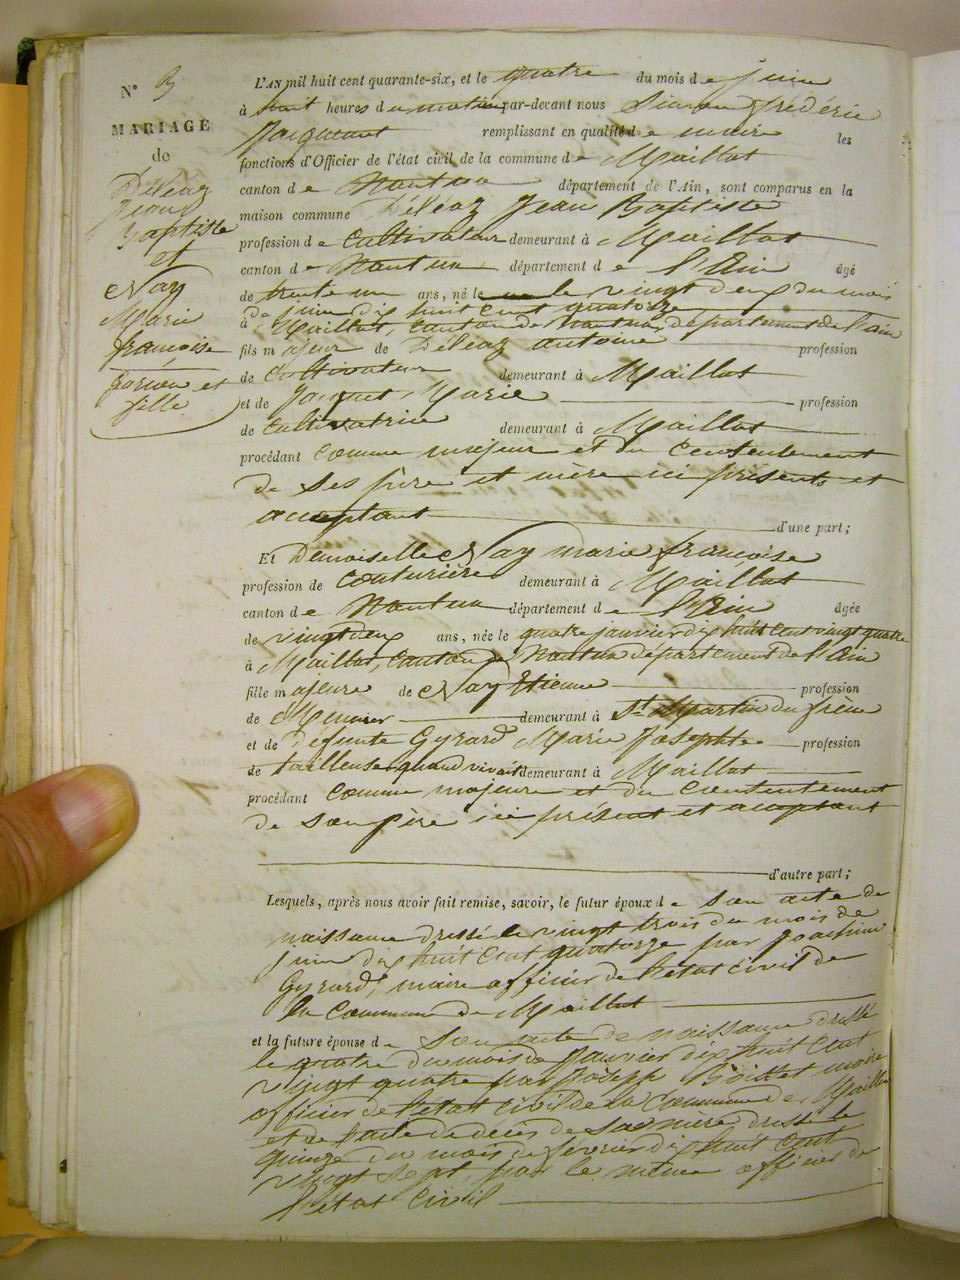 N° 3
MARIAGE
de
Déléaz
Jean
Baptiste
et
Nay
Marie
françoise
garçon et
fille
L'AN mil huit cent quarante-six, et le quatre du mois de juin
à huit heures du matin par-devant nous Simon Frédéric
Jacquinot remplissant en qualité de maire les
fonctions d'Officier de l'état civil de la commune de Maillat
canton de Nantua département de l'Ain, sont comparus en la
maison commune Déléaz Jean Baptiste
profession de Cultivateur demeurant à Maillat
canton de Nantua département de l'Ain âgé
de trente un ans, né le le vingt deux du mois
de juin dix huit cent quatorze
à Maillat, canton de Nantua, département de l'ain
fils majeur de Déléaz antoine profession
de Cultivateur demeurant à Maillat
et de Jacquet Marie profession
de Cultivatrice demeurant à Maillat
procédant comme majeur et du consentement
de ses père et mère ici présents et
acceptant d'une part;
Et Demoiselle Nay marie françoise
profession de Couturière demeurant à Maillat
canton de Nantua département de l'Ain âgée
de vingt deux ans, née le quatre janvier dix huit cent vingt quatre
à Maillat, canton de Nantua département de l'Ain
fille majeure de Nay Etienne profession
de Meunier demeurant à St Martin du frêne
et de défunte Gyrard Marie Josephte profession
de tailleuse quand vivait demeurant à Maillat
procédant comme majeure et du consentement
de son père ici présent et acceptant
d'autre part;
Lesquels, après nous avoir fait remise, savoir, le futur époux de son acte de
naissance dressé le vingt trois du mois de
juin dix huit cent quatorze par Joachim
Gyrard, maire officier de l'état civil de
la Commune de Maillat
et la future épouse de son acte de naissance dressé
le quatre du mois de Janvier dix huit cent
vingt quatre par Joseph maire
officier de l'état civil de la Commune de Maillat
et de l'acte de décès de sa mère, dressé le
quinze du mois de février dix huit cent
vingt sept, par le même officier de
l'état civil